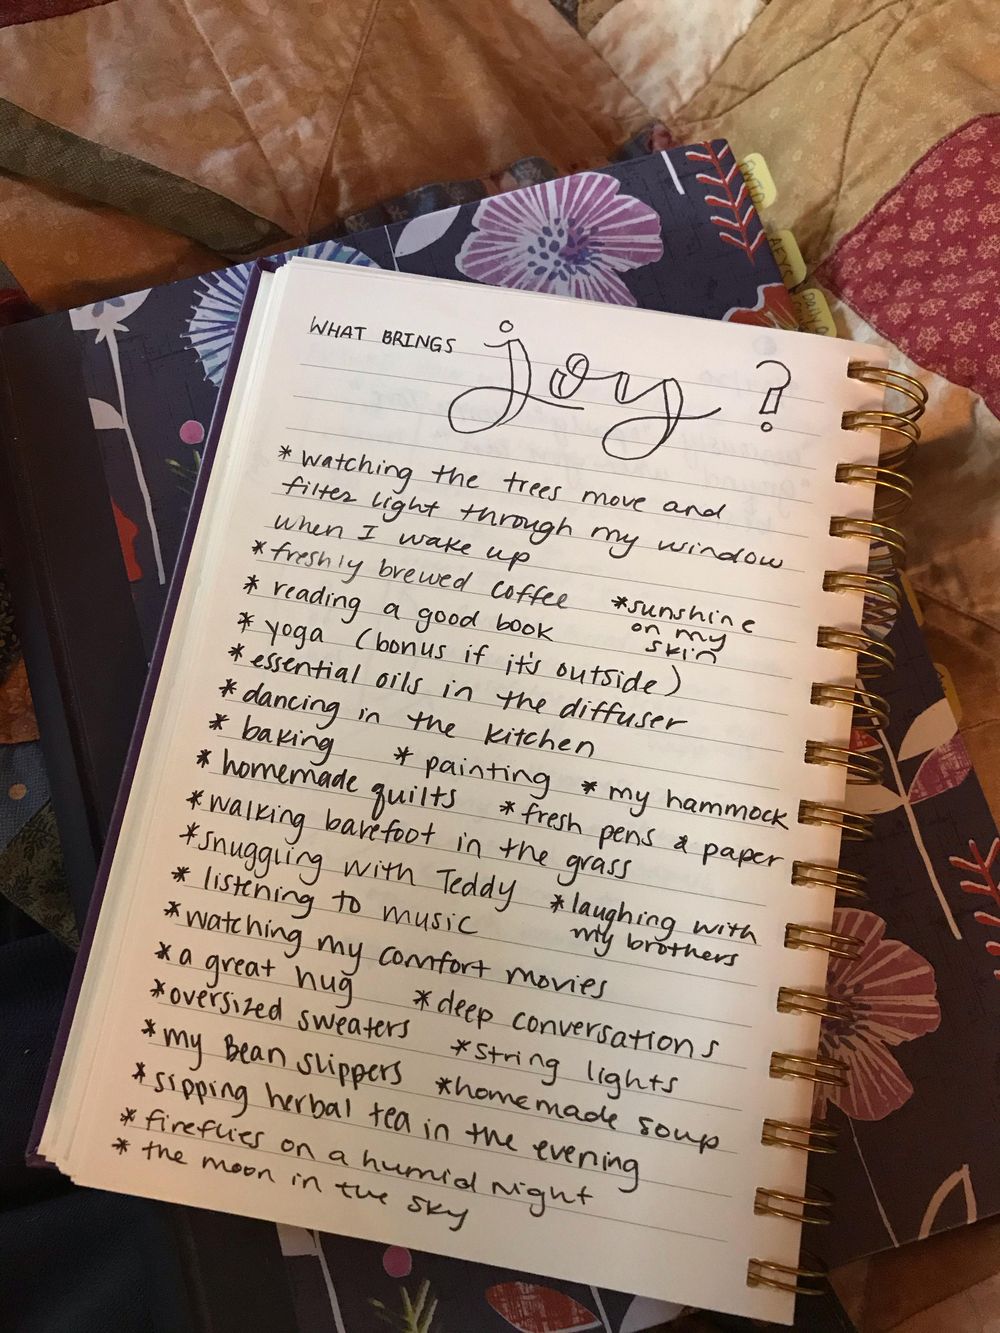 WHAT BRINGS joy?
* watching the trees move and
filter light through my window
when I wake up
* freshly brewed coffee
* sunshine
on my
skin
* reading a good book
* yoga (bonus if it's outside)
* essential oils in the diffuser
* dancing in the kitchen
* baking * painting * my hammock
* homemade quilts * fresh pens & paper
* walking barefoot in the grass
* snuggling with Teddy
* laughing with
my brothers
* listening to music
* watching my comfort movies
* a great hug * deep conversations
* oversized sweaters * string lights
* my Bean slippers * homemade soup
* sipping herbal tea in the evening
* fireflies on a humid night
* the moon in the sky